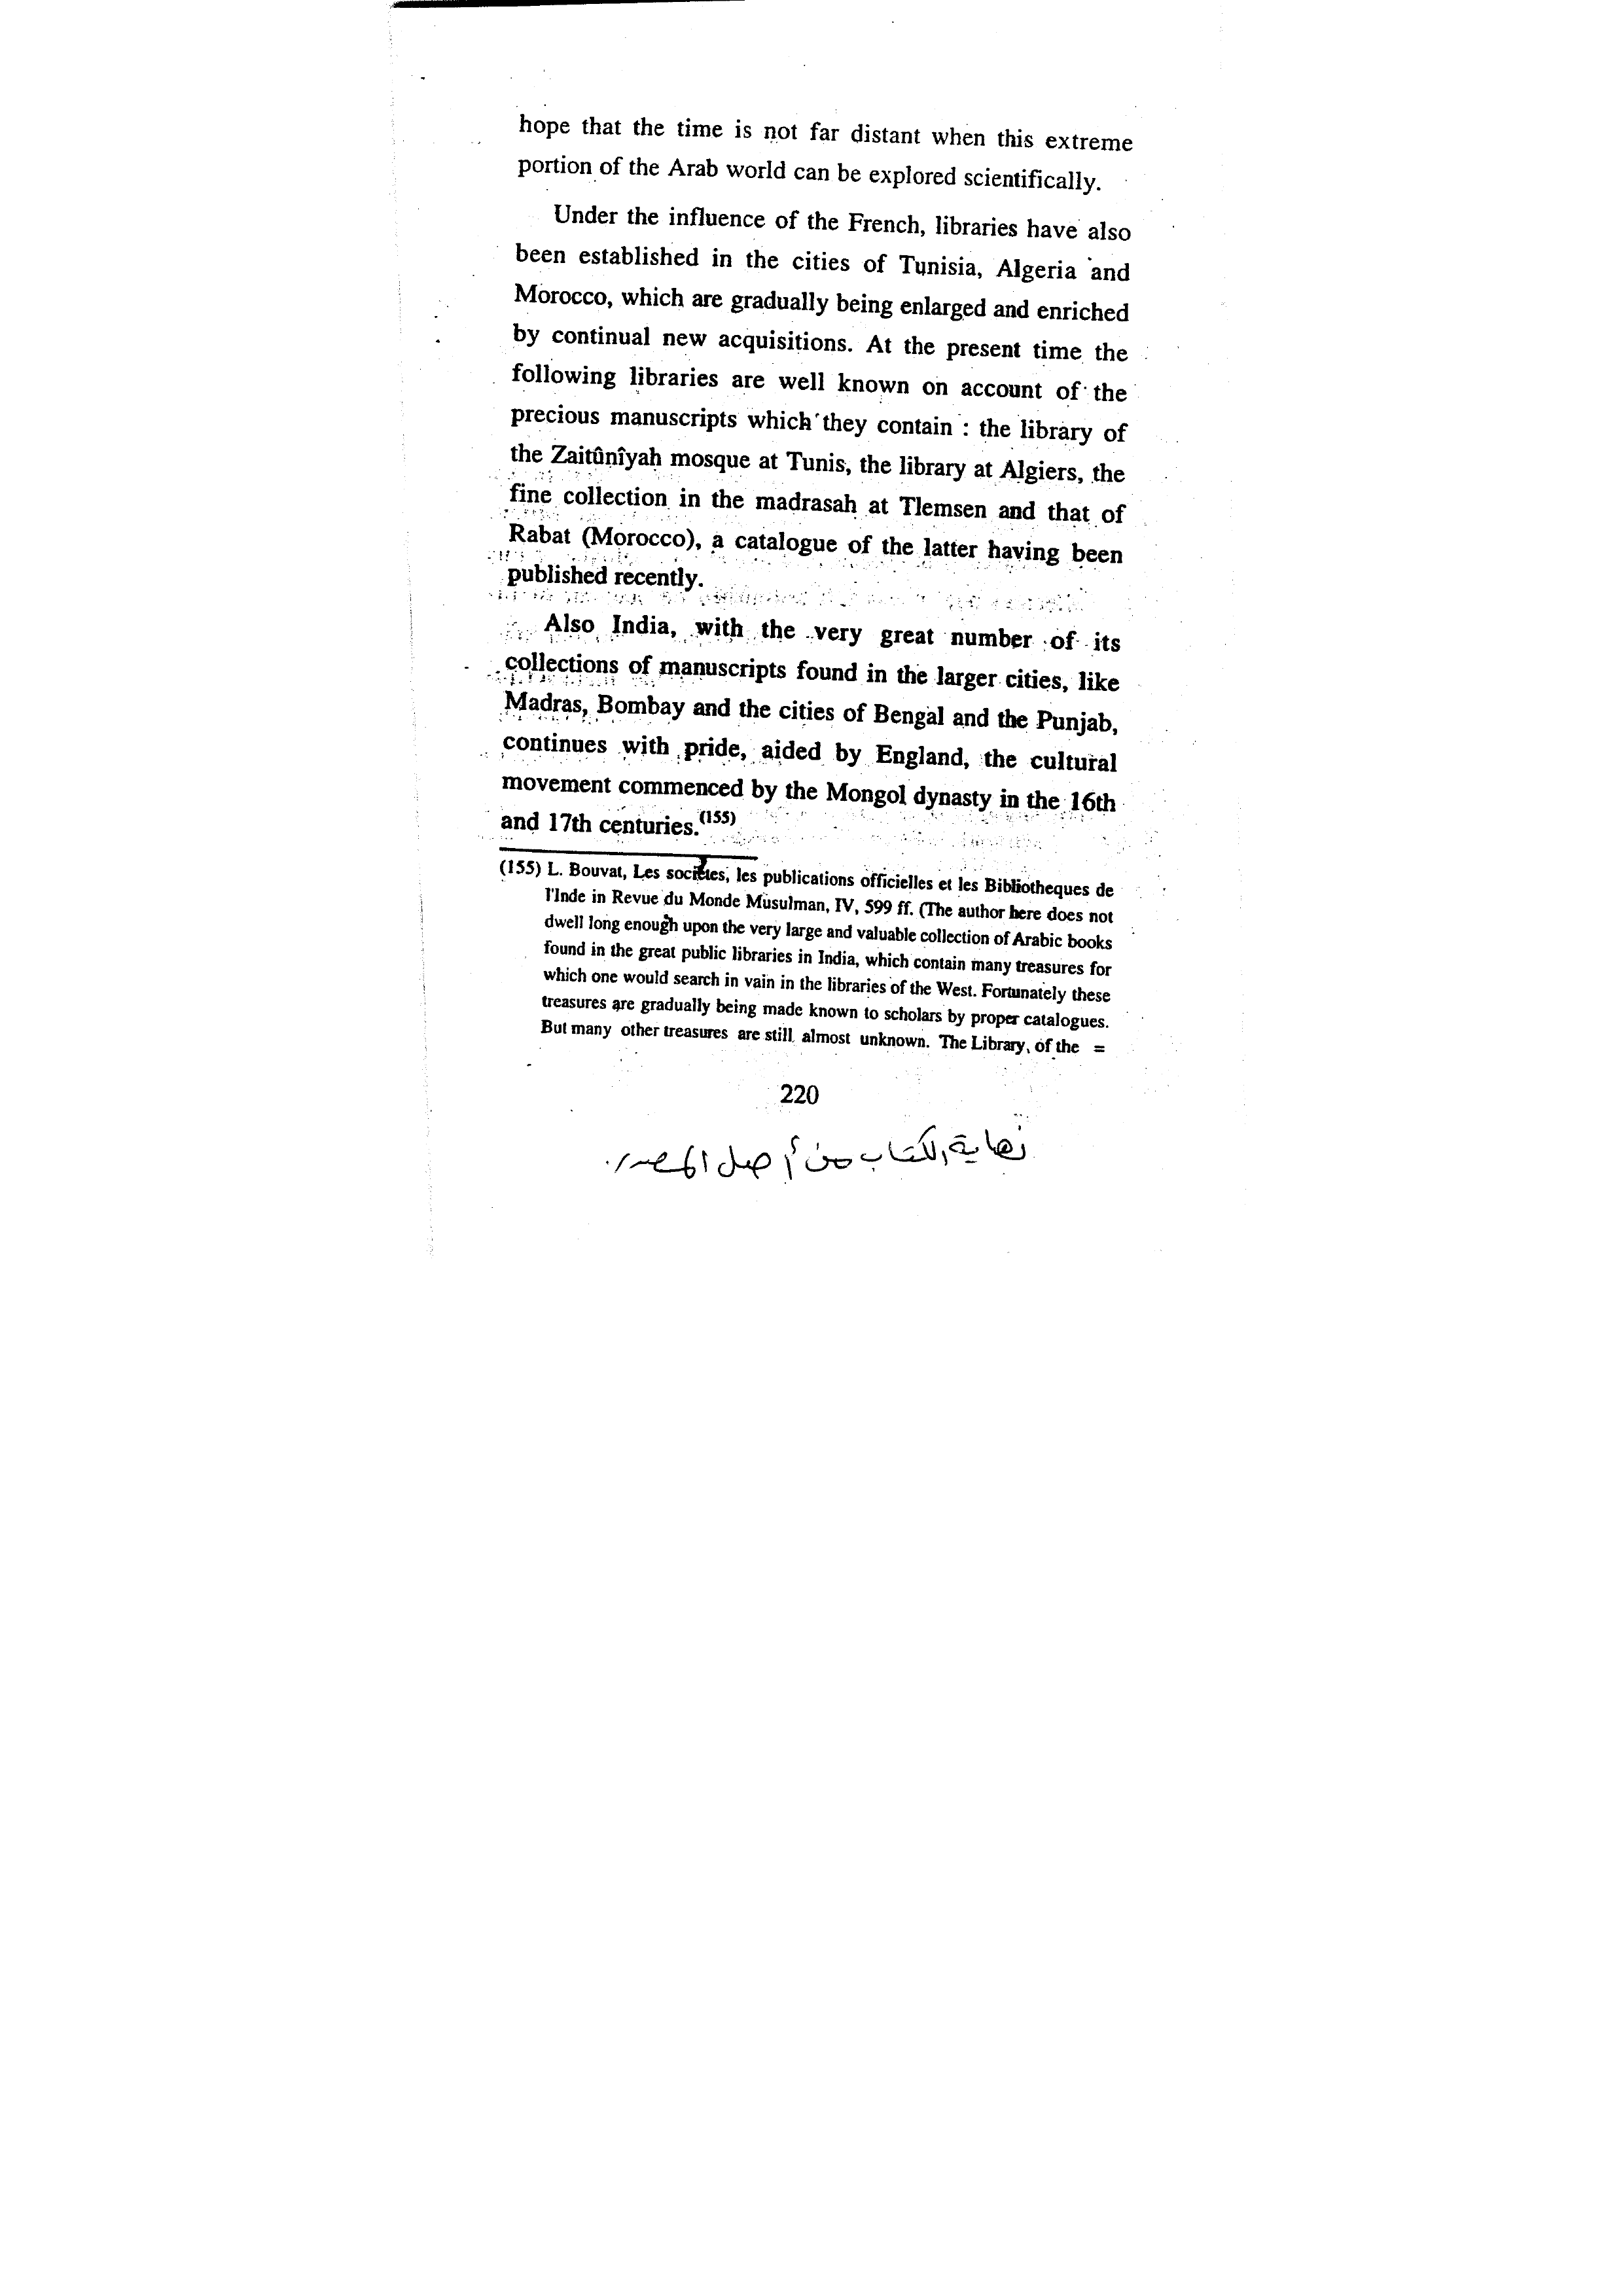 hope that the time is not far distant when this extreme
portion of the Arab world can be explored scientifically.
Under the influence of the French, libraries have also
been established in the cities of Tunisia, Algeria and
Morocco, which are gradually being enlarged and enriched
by continual new acquisitions. At the present time the
following libraries are well known on account of the
precious manuscripts which they contain : the library of
the Zaitûnîyah mosque at Tunis, the library at Algiers, the
fine collection in the madrasah at Tlemsen and that of
Rabat (Morocco), a catalogue of the latter having been
published recently.
Also India, with the very great number of its
collections of manuscripts found in the larger cities, like
Madras, Bombay and the cities of Bengal and the Punjab,
continues with pride, aided by England, the cultural
movement commenced by the Mongol dynasty in the 16th
and 17th centuries.(155)
(155) L. Bouvat, Les sociétes, les publications officielles et les Bibliotheques de
l'Inde in Revue du Monde Musulman, IV, 599 ff. (The author here does not
dwell long enough upon the very large and valuable collection of Arabic books
found in the great public libraries in India, which contain many treasures for
which one would search in vain in the libraries of the West. Fortunately these
treasures are gradually being made known to scholars by proper catalogues.
But many other treasures are still almost unknown. The Library, of the =
220
نهاية الكتاب من أصل المصدر.